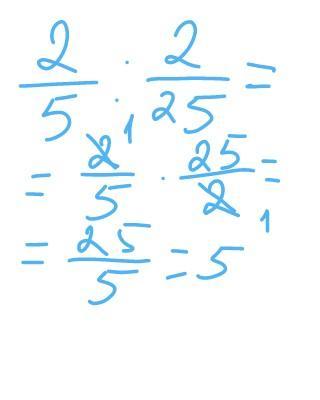 2/5 : 2/25 =
= 2/5 · 25/2 =
1 1
= 25/5 = 5